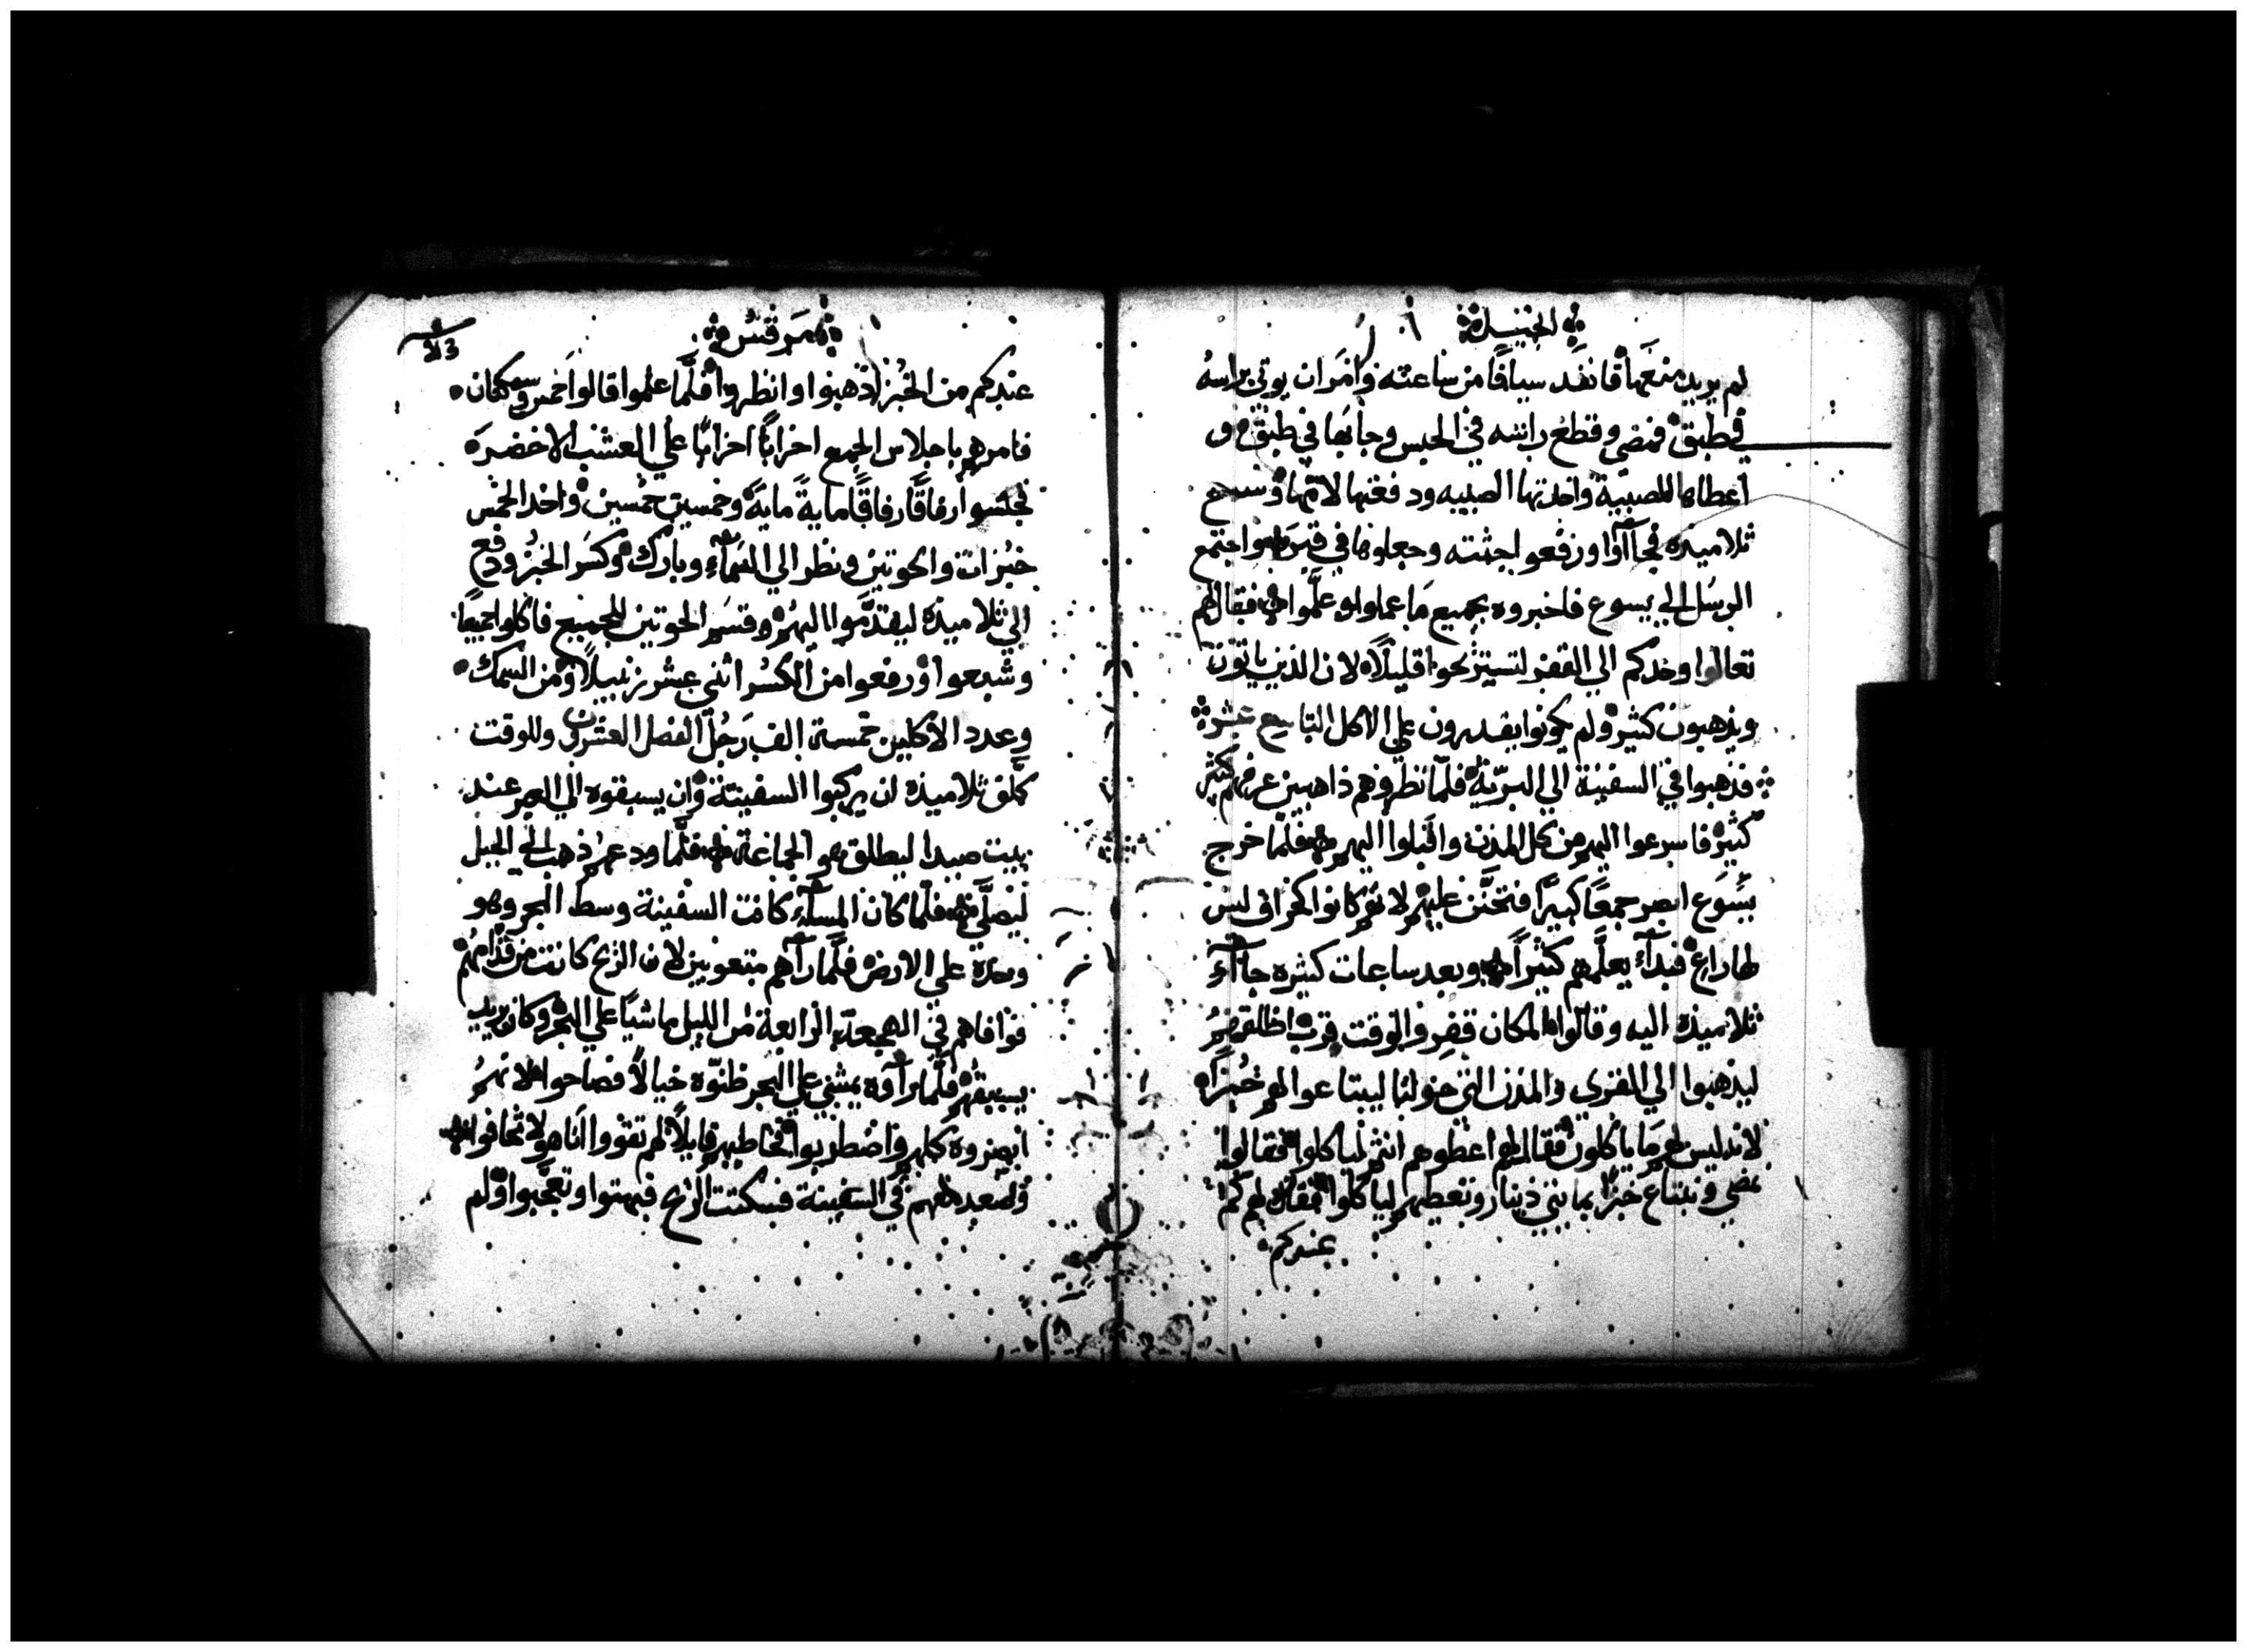 انجيل
لم يريد منعها فانفد سيافا من ساعته وامران يوتي براسه
في طبق فمضي وقطع راسه في الحبس وجا بها في طبق و
اعطاها للصبية واخدتها الصبيه ودفعتها لامها وسمع
تلاميذه فجاآوا ورفعوا جثته وجعلوها في قبر واجتمع
الرسل الي يسوع فاخبروه بجميع ما عملوا وعلموا فقال لهم
تعالوا وحدكم الي القفر لتستريحوا قليلاً لان الذين ياتون
ويذهبون كثير ولم يكونوا يقدرون علي الاكل التاسع عشر
فذهبوا في السفينة الي البرية فلما نظروهم ذاهبين عرفهم كثير
كثير فاسرعوا اليهم من كل المدن واقبلوا اليهم فلما خرج
يسوع ابصر جمعًا كبيرًا فتحنن عليهم لانهم كانوا كخراف ليس
لها راع فبدآء يعلمهم كثيرًا وبعد ساعات كثيره جاآء
تلاميذه اليه وقالوا المكان قفر والوقت قرب اطلقهم
ليذهبوا الي القري والمدن التي حولنا ليبتاعوا لهم خبزًا
لانه ليس لهم ما ياكلون فقال لهم اعطوهم انتم لياكلوا فقالوا
نمضي ونبتاع خبزًا بمايتي دينار ونعطيهم لياكلوا فقال لهم كم
عندكم
مرقس
عندكم من الخبز اذهبوا وانظروا فلما علموا قالوا خمس وسمكتان
فامرهم باجلاس الجميع احزابًا احزابًا علي العشب الاخضر
فجلسوا رفاقًا رفاقًا مايةً مايةً وخمسين خمسين واخد الخمس
خبزات والحوتين ونظر الي السمآء وبارك وكسر الخبز ودفع
الي تلاميذه ليقدموا اليهم وقسم الحوتين للجميع فاكلوا جميعًا
وشبعوا ورفعوا من الكسر اثني عشر زنبيلاً ومن السمك
وعدد الاكلين خمسة الف رجل الفصل العشرون وللوقت
كلف تلاميذه ان يركبوا السفينة وان يسبقوه الي العبر عند
بيت صيدا ليطلق هو الجماعة فلما ودعهم ذهب الي الجبل
ليصلي فلما كان المسآء كانت السفينة وسط البحر وهو
وحده علي الارض فلما رآهم متعوبين لان الريح كانت من قدامهم
فوافاهم في الهجعة الرابعة من الليل ماشيًا علي البحر وكان يريد
يسبقهم فلما رآوه يمشي علي البحر ظنوه خيالاً فصاحوا لانهم
ابصروه كلهم واضطربوا فخاطبهم قايلاً لهم تقووا انا هو لا تخافوا
وصعد اليهم في السفينة فسكتت الريح فبهتوا وتعجبوا ولم